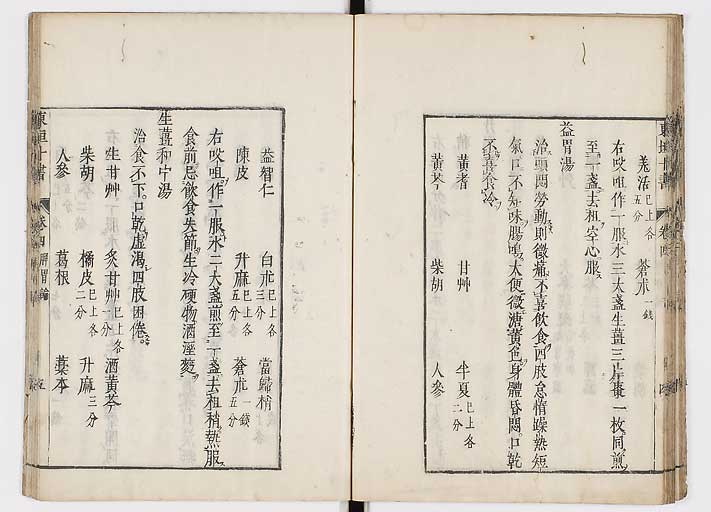 羌活已上各五分 蒼朮一錢
右㕮咀作一服水三大盞生薑三片棗一枚同煎
至一盞去柤空心服
益胃湯
治頭悶勞動則微痛不喜飲食四肢怠惰躁熱短
氣口不知味腸鳴大便微溏黃色身體昏悶口乾
不喜食冷
黃耆 甘艸 半夏已上各二分
黃芩 柴胡 人參
益智仁 白朮已上各三分 當歸梢
陳皮 升麻已上各五分 蒼朮一錢五分
右㕮咀作一服水二大盞煎至一盞去柤稍熱服
食前忌飲食失節生冷硬物酒溼麵
生薑和中湯
治食不下口乾虛渴四肢困倦
生甘艸 炙甘艸已上各一分 酒黃芩
柴胡 橘皮已上各二分 升麻三分
人參 葛根 藁本
東垣十書 卷四 脾胃論 五